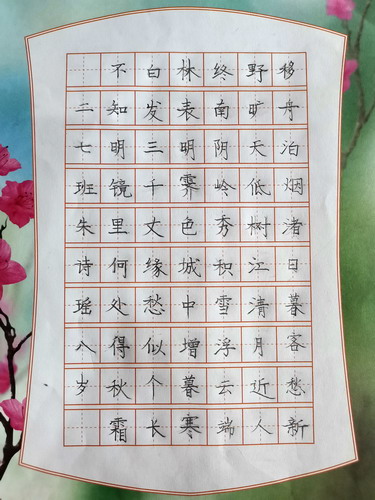 移舟泊烟渚日暮客愁新
野旷天低树江清月近人
终南阴岭秀积雪浮云端
林表明霁色城中增暮寒
白发三千丈缘愁似个长
不知明镜里何处得秋霜
二七班朱诗瑶八岁